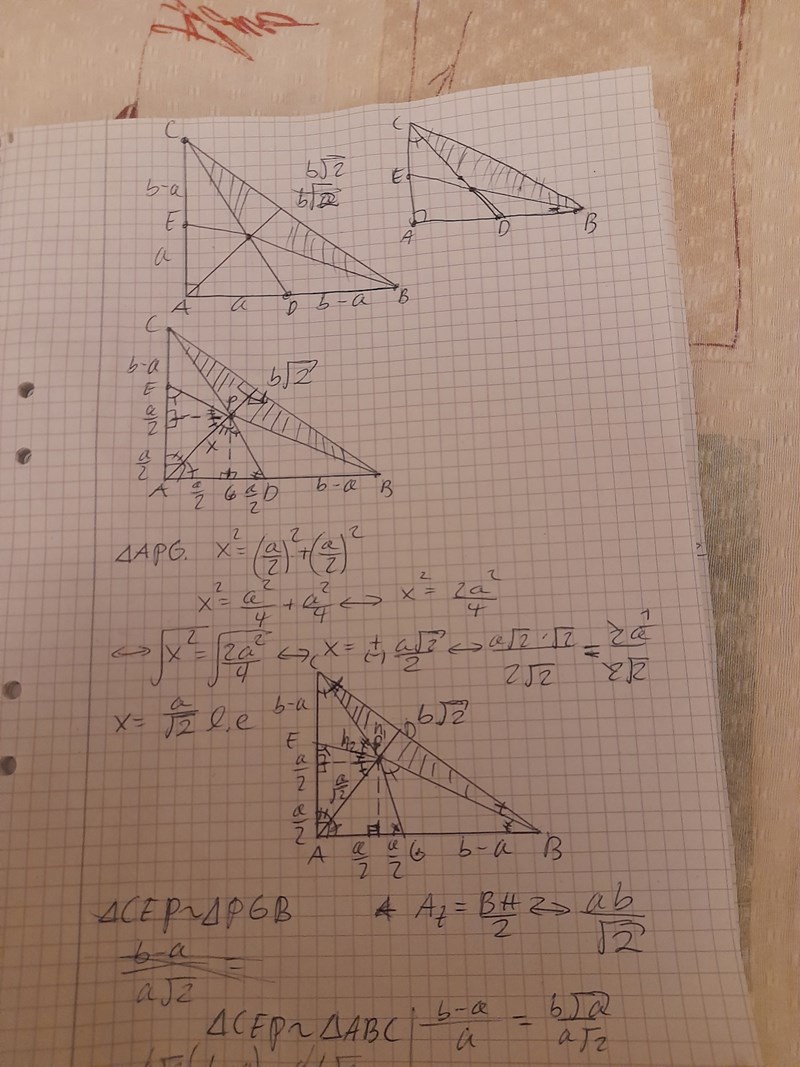 C
b-a
E
a
A a D b-a B
b√2
C
E
A D B
C
b-a
E
a/2
a/2
P
x
b√2
A a/2 G a/2 D b-a B
△APG. x² = (a/2)² + (a/2)²
x² = a²/4 + a²/4 ↔ x² = 2a²/4
↔ √x² = √2a²/4 ↔ x = ± (-) a√2/2 ↔ a√2·√2/2√2 = 2a/2√2
x = a/√2 l.e
C
b-a
E
a/2
a/2
a/√2
D
b√2
A a/2 a/2 G b-a B
△CEP~△PGB
At = BH/2 ↔ ab/√2
b-a/a√2 =
△CEP~△ABC | b-a/a = b√a/a√2